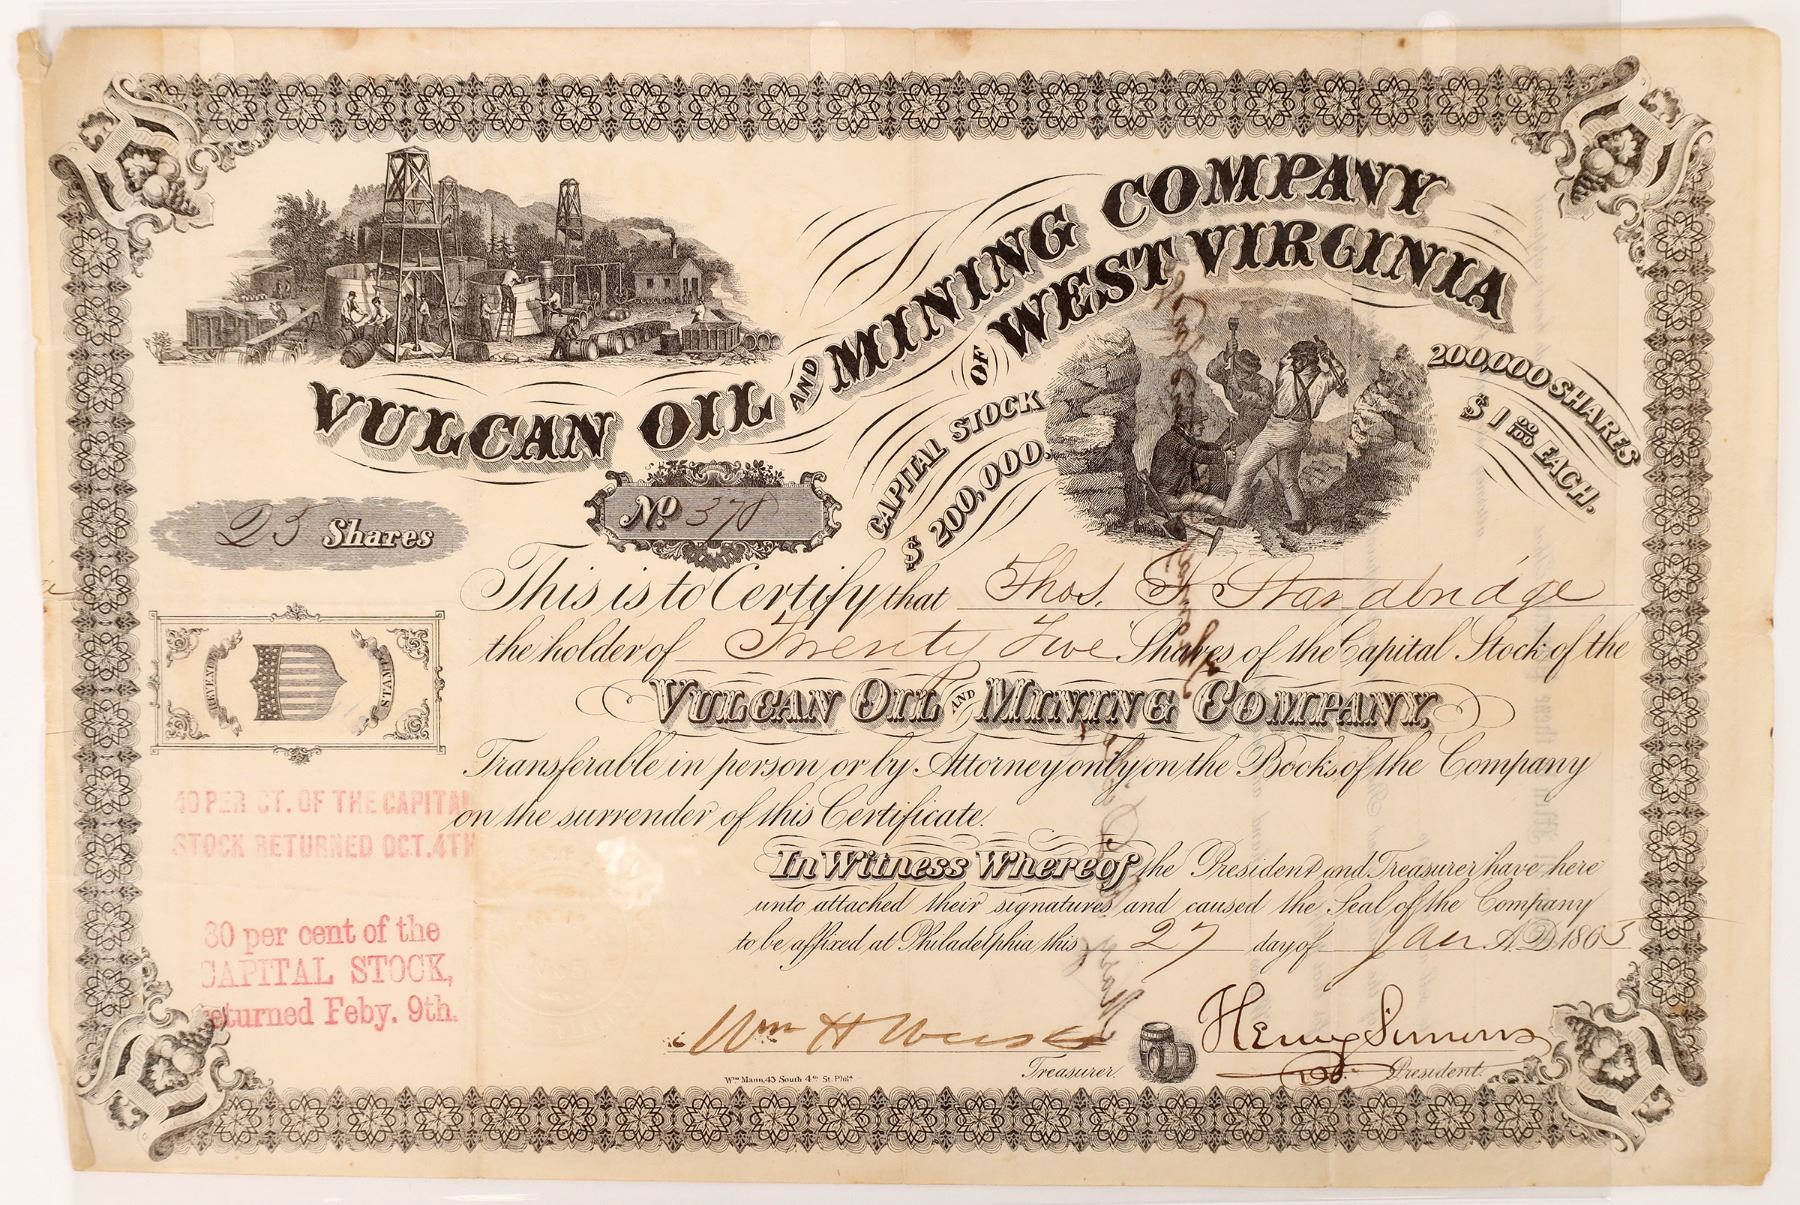 VULCAN OIL AND MINING COMPANY
OF WEST VIRGINIA
CAPITAL STOCK
$200,000.
200,000 SHARES
$1 00/100 EACH.
25 Shares
No. 378
This is to Certify that Thos. S. Standbridge
the holder of Twenty Five Shares of the Capital Stock of the
VULCAN OIL AND MINING COMPANY,
Transferable in person or by Attorney only on the Books of the Company
on the surrender of this Certificate.
REVENUE STAMP
40 PER CT. OF THE CAPITAL
STOCK RETURNED OCT. 4TH
30 per cent of the
CAPITAL STOCK,
returned Feby. 9th.
In Witness Whereof the President and Treasurer have here
unto attached their signatures and caused the Seal of the Company
to be affixed at Philadelphia this 27 day of Jan A.D. 1865
Wm H
Henry Simons
Treasurer.
President.
Wm Mann, 43 South 4th St. Phila